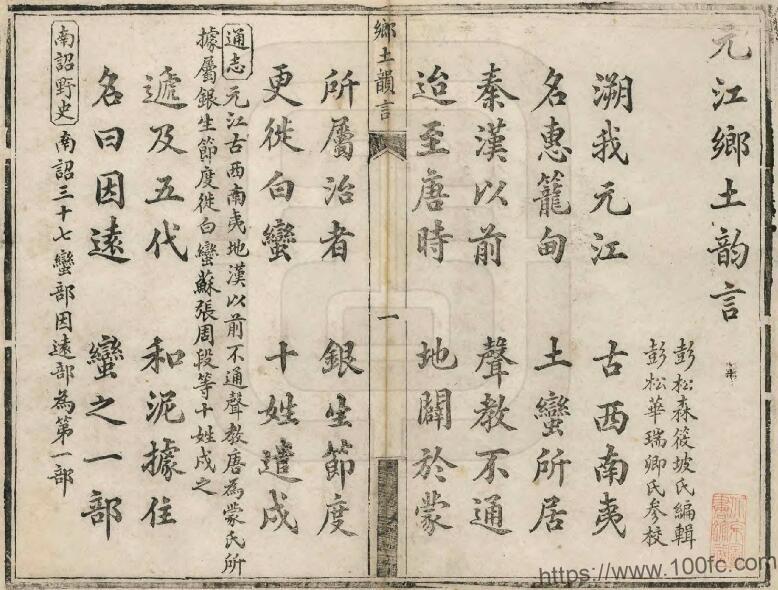 元江鄉土韵言
彭松森筱坡氏編輯
彭松華瑞卿氏參校
溯我元江 古西南夷
名惠籠甸 土蠻所居
秦漢以前 聲教不通
迨至唐時 地闢於蒙
鄉土韻言 一
所屬治者 銀生節度
更徙白蠻 十姓遣戍
通志 元江古西南夷地漢以前不通聲教唐為蒙氏所
據屬銀生節度徙白蠻蘇張周段等十姓戍之
遞及五代 和泥據住
名曰因遠 蠻之一部
南詔野史 南詔三十七蠻部因遠部為第一部
https://www.100fc.com